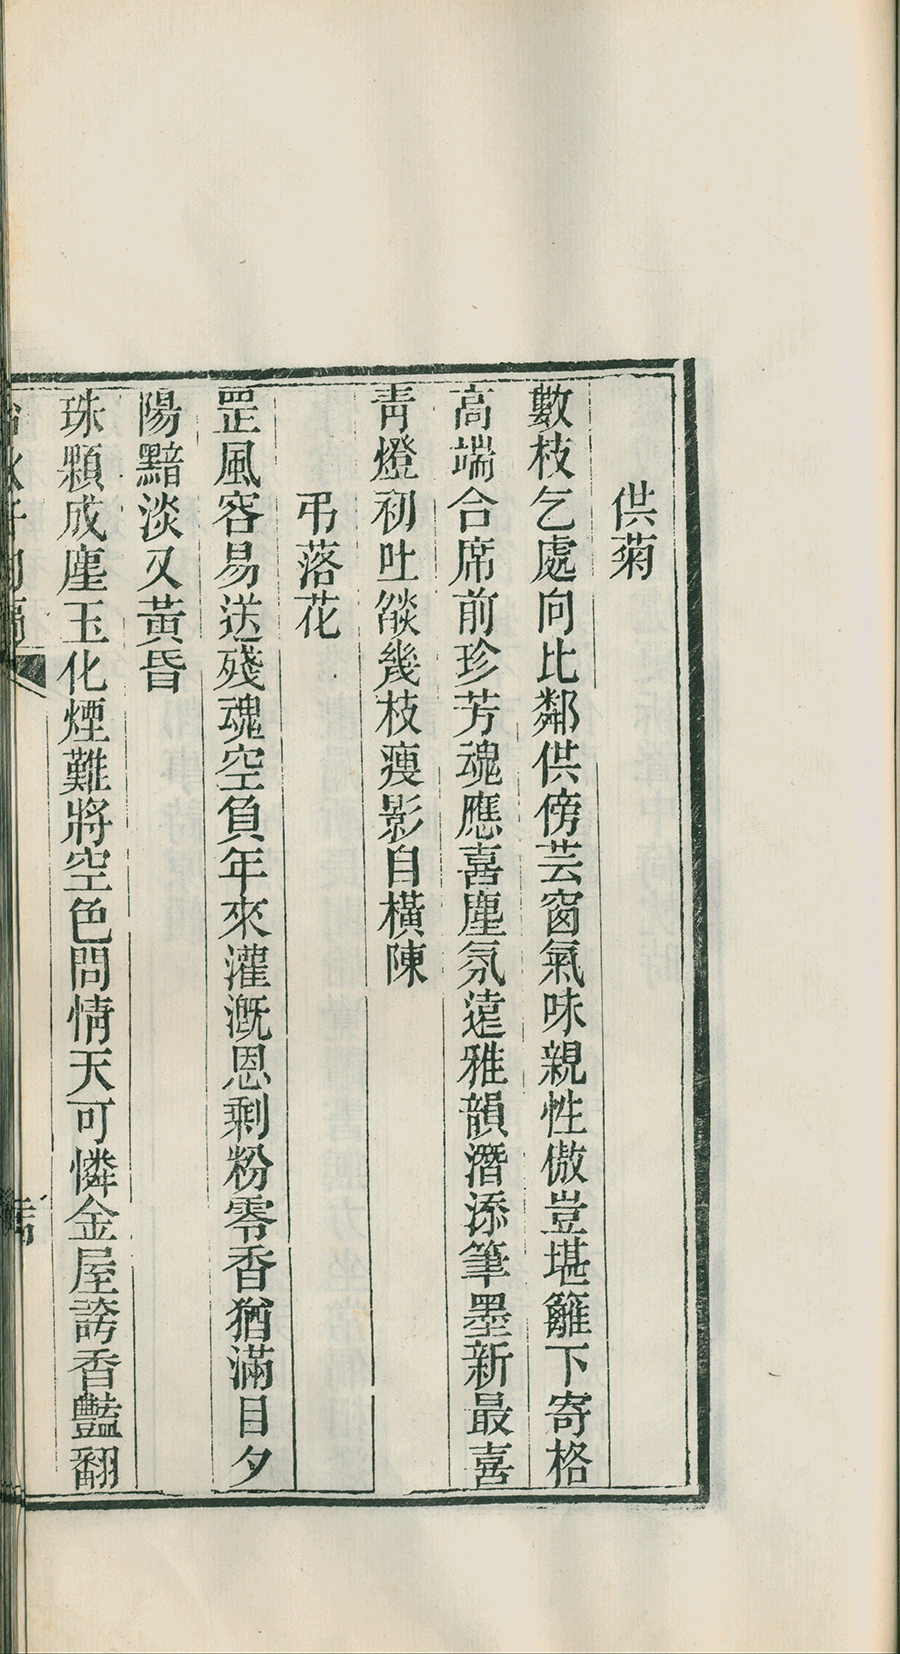 供菊
數枝乞處向比鄰供傍芸窗氣味親性傲豈堪籬下寄格
高端合席前珍芳魂應喜塵氛遠雅韻潛添筆墨新最喜
青燈初吐燄幾枝瘦影自橫陳
弔落花
罡風容易送殘魂空負年來灌溉恩剩粉零香猶滿目夕
陽黯淡又黃昏
珠顆成塵玉化煙難將空色問情天可憐金屋誇香豔翻